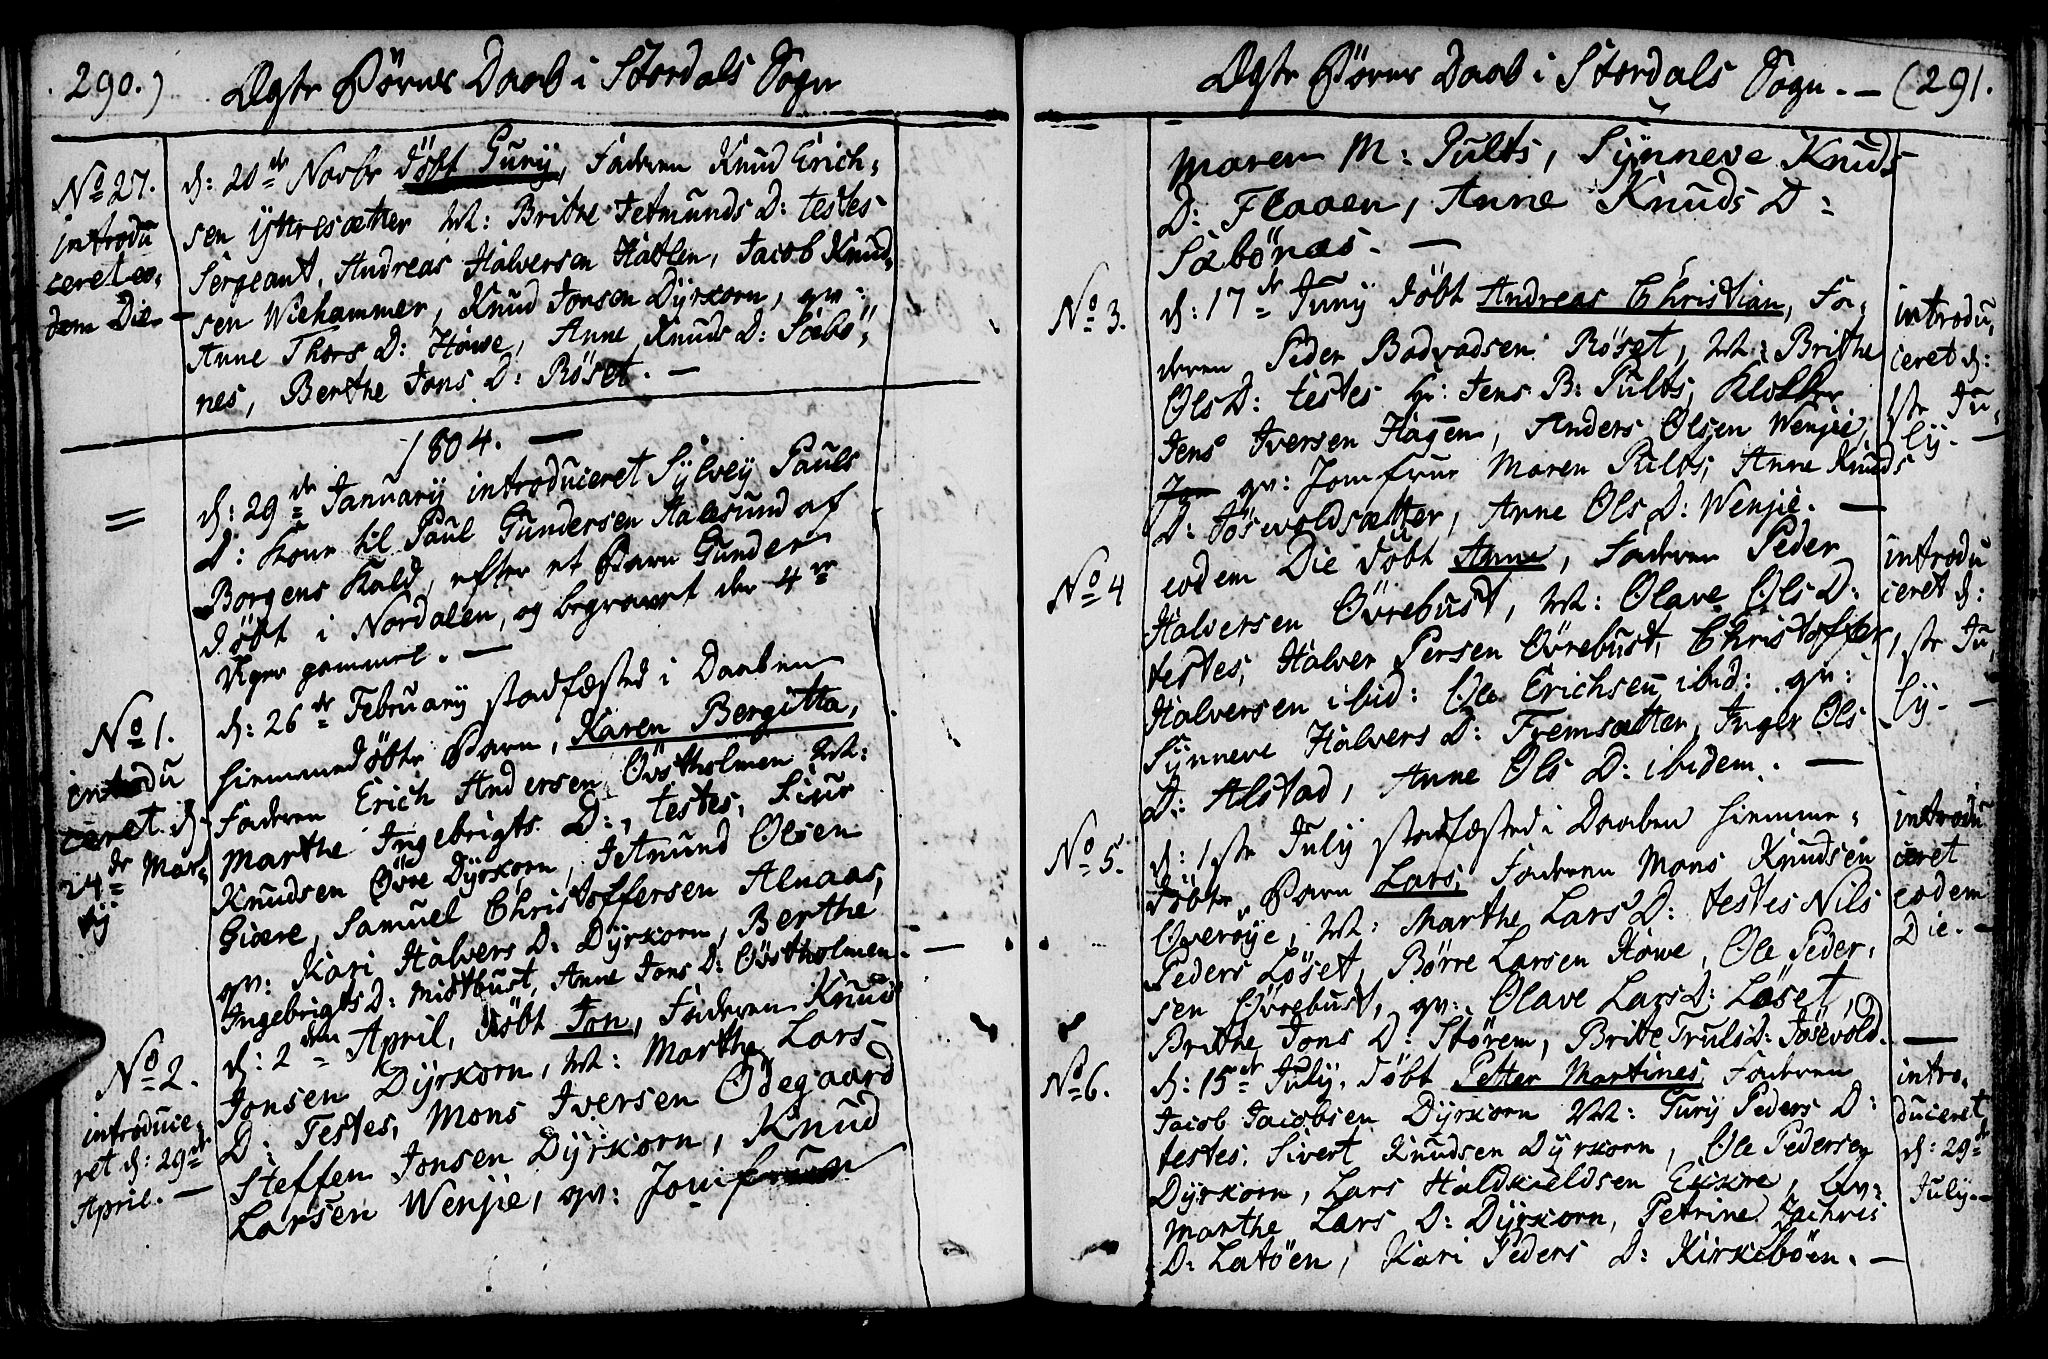 290.) Ægte Børns Daab i Stordals Sogn
No 27.
introdu
ceret eo,
dem Die
d: 20de Novbr döbt Gurij, Faderen Knud Erich,
sen Yttresætter M: Brithe Jetmunds D: testes
Sergeant, Andreas Halversen Hatlen, Jacob Knud,
sen Wiehammer, Knud Jonsen Dÿrkorn, qv:
Anne Thors D: Höwe, Anne Knuds D: Sæbö,
nes, Berthe Jons D: Röset. —
1804. —
=
d: 29de Januarij introduceret Sÿlveÿ Pauls
D: Kone til Paul Gundersen Aalesund af
Borgens Kald, efter et Barn Gunder
döbt i Nordalen, og begravet der 4re
Uger gammel. —
No 1.
introdu
ceret d:
24de Mar,
tij
d: 26de Februarij stadfæsted i Daaben
hiemmedöbte Barn, Karen Bergitta,
Faderen Erich Andersen Övstholmen M:
Marthe Ingebrigts D:, testes, Siur
Knudsen Övre Dÿrkorn, Jetmund Olsen
Giære, Samuel Christoffersen Alnaas,
qv: Kari Halvers D: Dÿrkorn, Berthe
Ingebrigts D: Midtbust, Anne Jons D: Övstholmen.
No 2.
introduce,
ret d: 29de
April. —
d: 2den April, döbt Jon, Faderen Knud
Jonsen Dÿrkorn, M: Marthe Lars
D: Testes, Mons Iversen Ödegaard
Steffen Jonsen Dÿrkorn, Knud
Larsen Wenjie, qv: Jomfruen
Ægte Börns Daab i Stordals Sogn. — (291.
Maren M: Pults, Sÿnneve Knuds
D: Flaaen, Anne Knuds D:
Sæbönæs. —
No 3.
d: 17de Junij döbt Andreas Christian, Fa,
deren Peder Badvadsen Röset, M: Brithe
Ols D: testes Hr: Jens B: Pults, Klokker
Jens Iversen Hagen, Anders Olsen Wenjie,
Jon qv: Jomfrue Maren Pults, Anne Knuds
D: Jösevoldsætter, Anne Ols D: Wenjie. —
introdu,
ceret d:
1ste Ju,
lij. —
No 4
eodem Die döbt Anne, Faderen Peder
Halversen Övrebust, M: Olave Ols D:
testes, Halver Persen Övrebust, Christoffer
Halversen ibid: Ole Erichsen ibid: qv:
Sÿnneve Halvers D: Fremsætter, Inger Ols
D: Alstad, Anne Ols D: ibidem. —
introdu
ceret d:
1ste Ju,
lij. —
No 5.
d: 1ste Julij stadfæsted i Daaben hiemme,
döbte Barn Lars, Faderen Mons Knudsen
Overöÿe, M: Marthe Lars D: testes Nils
Peders Löset, Börre Larsen Höwe, Ole Peder,
sen Övrebust, qv: Olave Lars D: Löset,
Brithe Jons D: Störem, Brite Truls D: Jösevold. —
introdu
ceret
eodem
Die. —
No 6.
d: 15de Julij, döbt Petter Martines, Faderen
Jacob Jacobsen Dÿrkorn M: Gurij Peders D:
testes, Sivert Knudsen Dÿrkorn, Ole Pedersen
Dÿrkorn, Lars Haldkieldsen Ekkre, qv:
Marthe Lars D: Dÿrkorn, Petrine Zachris
D: Latöen, Kari Peders D: Kirkeböen. —
intro,
duceret
d: 29de
Julij. —